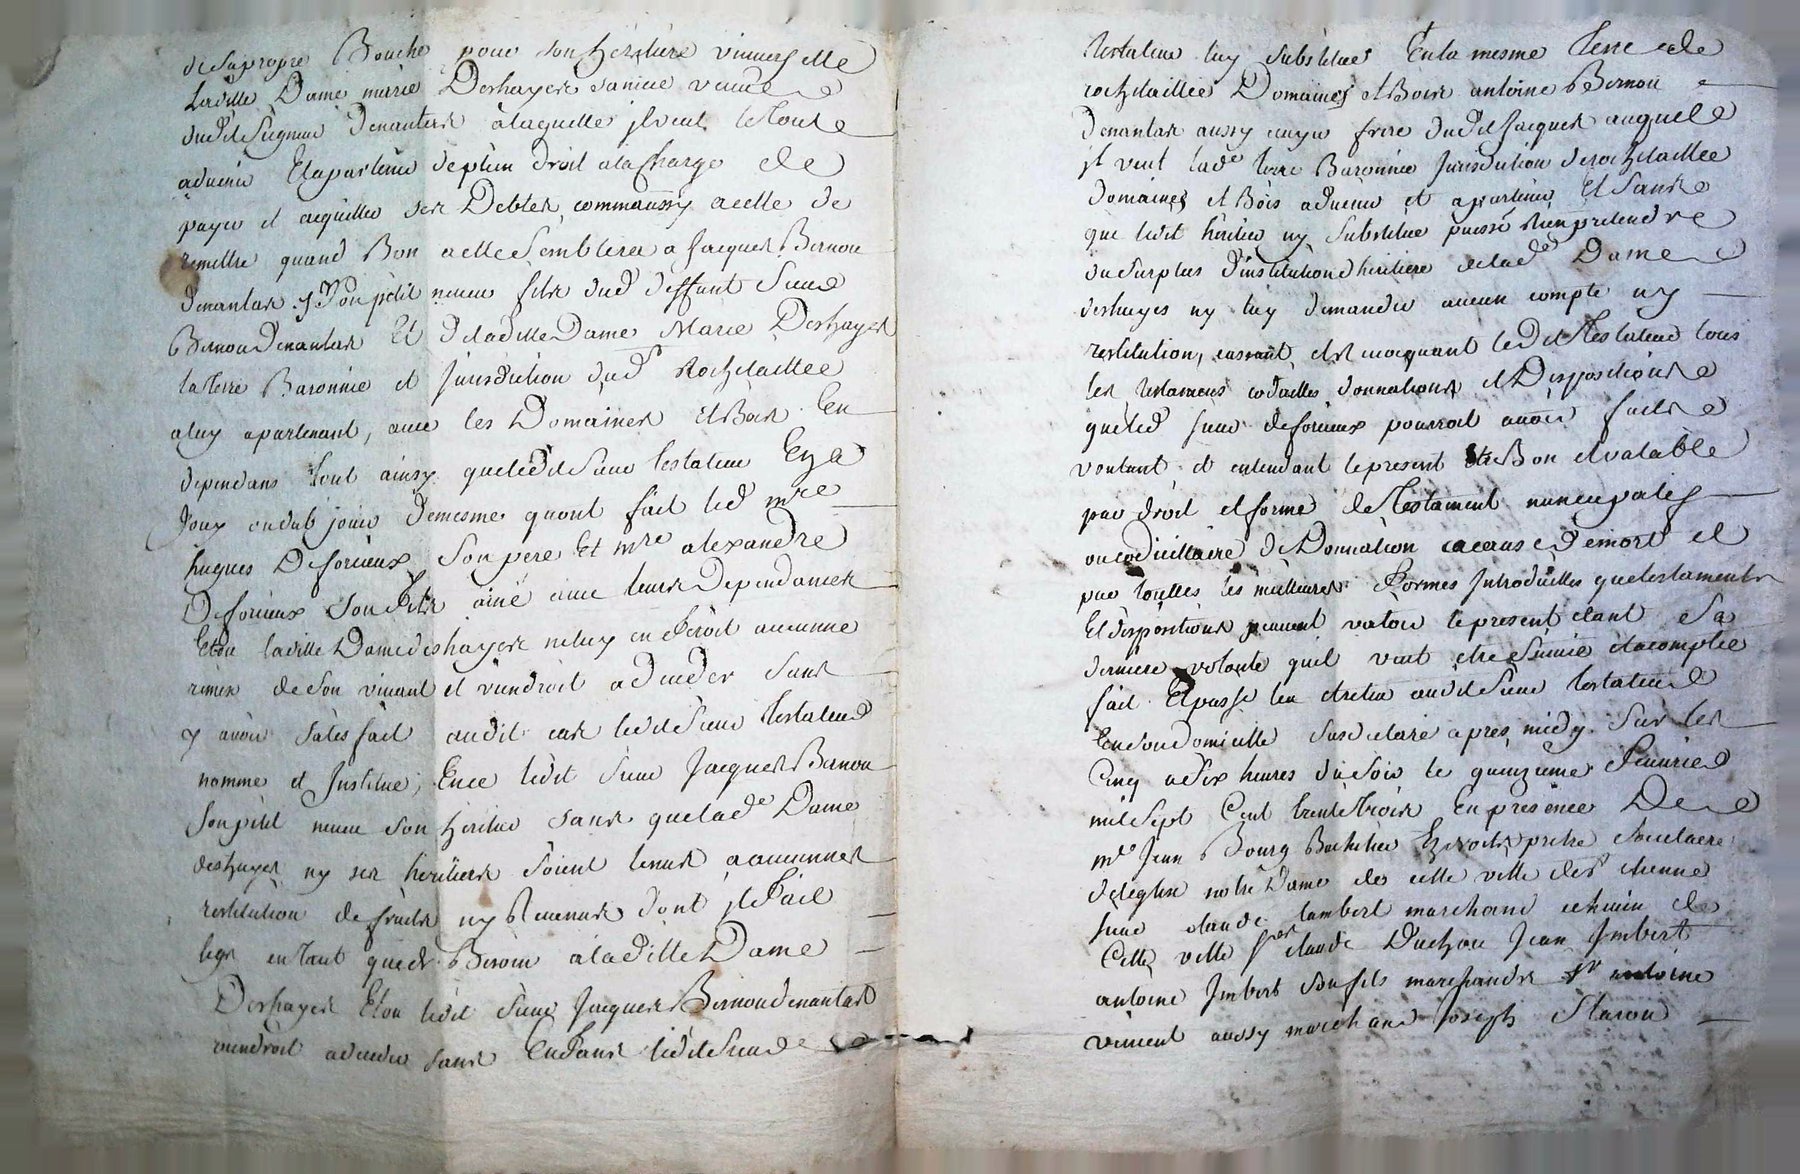 de sa propre Bouche pour son héritière universelle
ladille Dame marie Deshayes sa niece veuve
dudit Seigneur denantas a laquelle jl veut le Toute
advenir Et apartenir de plein droit a la Charge de
payer et acquitter ses Debtes, comm aussy a celle de
remettre quand Bon a elle Semblera a Jacques Bernou
denantas son petit neveu fils dud deffunt Sieur
Bernou denantas Et de laditte Dame Marie Deshayes
la Terre Baronnie et jurisdiction dud Rochetaillée
a luy apartenant, avec les Domaines Et Bois En
dependans tout ainsy que ledit Sieur testateur En a
Jouy ou dub jouir de mesme quont fait led mre
hugues Deforieux Son pere Et mre alexandre
Deforieux Son fils ainé avec leurs Dependances
Et ou laditte Dame deshayes ne luy en feroit aucunne
remise de son vivant et viendroit a deceder sans
y avoir satisfait audit cas ledit Sieur Testateur
nomme et Institue, En ce ledit Sieur Jacques Bernou
son petit neveu son heritier sans que lade Dame
deshayes ny ses heritiers soient tenus a aucunnes
restitution de fruits ny Revenus dont jl fait
legs en tant que de Besoin a laditte Dame
Deshayes Et ou ledit Sieur Jacques Bernou denantas
viendroit a deceder sans Enfans ledit Sieur
testateur luy substitue En la mesme Terre de
rochetaillée Domaines et Bois antoine Bernou
denantas aussy neveu frere dudit Jacques auquel
jl veut lade terre Baronnie Jurisdiction de rochetaillée
Domaines et Bois advenir et apartenir Et Sans
que ledit heritier ny Substitué puisse Rien pretendre
du surplus d'institution d'heritiere de lade Dame
deshayes ny luy demander aucun compte ny
restitution, cassant et revocquant ledit Testateur tous
les testamens codicilles donnations et Dispositions
que led sieur deforieux pourroit avoir faits
voulant et entendant le present être Bon et valable
par droit et forme de Testament nuncupatif
ou codicillaire de Donnation a cause de mort et
par touttes les meilleures formes Introduittes que testaments
Et dispositions peuvent valoir le present etant sa
derniere volonté quil veut être suivie et acomplie
fait Et passé leu et relu audit Sieur testateur
En son domicille susdeclaré apres midy sur les
Cinq a Six heures du Soir le quinzieme feuvrier
mil sept Cent trente trois En presence De
me Jean Bourg Bachelier En droits pretre societaire
de leglise notre Dame de cette ville de st etienne
sieur claude lambert marchand echevin de
Cette ville sr claude Duchou Jean Imbert
antoine Imbert son fils marchands sr antoine
vincent aussy marchand Joseph Staron